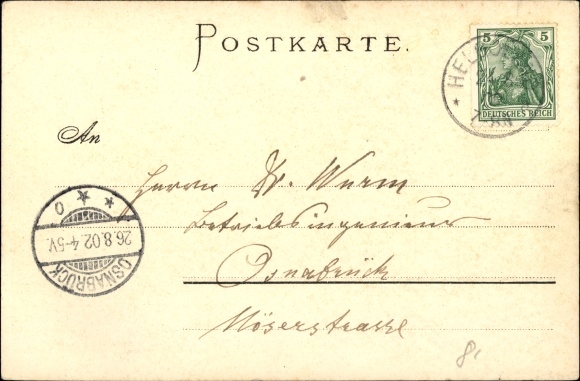 POSTKARTE.
5 5
DEUTSCHES REICH
HEL
An
Herrn Dr. Wurm
Betriebsingenieur
Osnabrück
Möserstrasse
OSNABRÜCK
26.8.02.4-5V.
8,